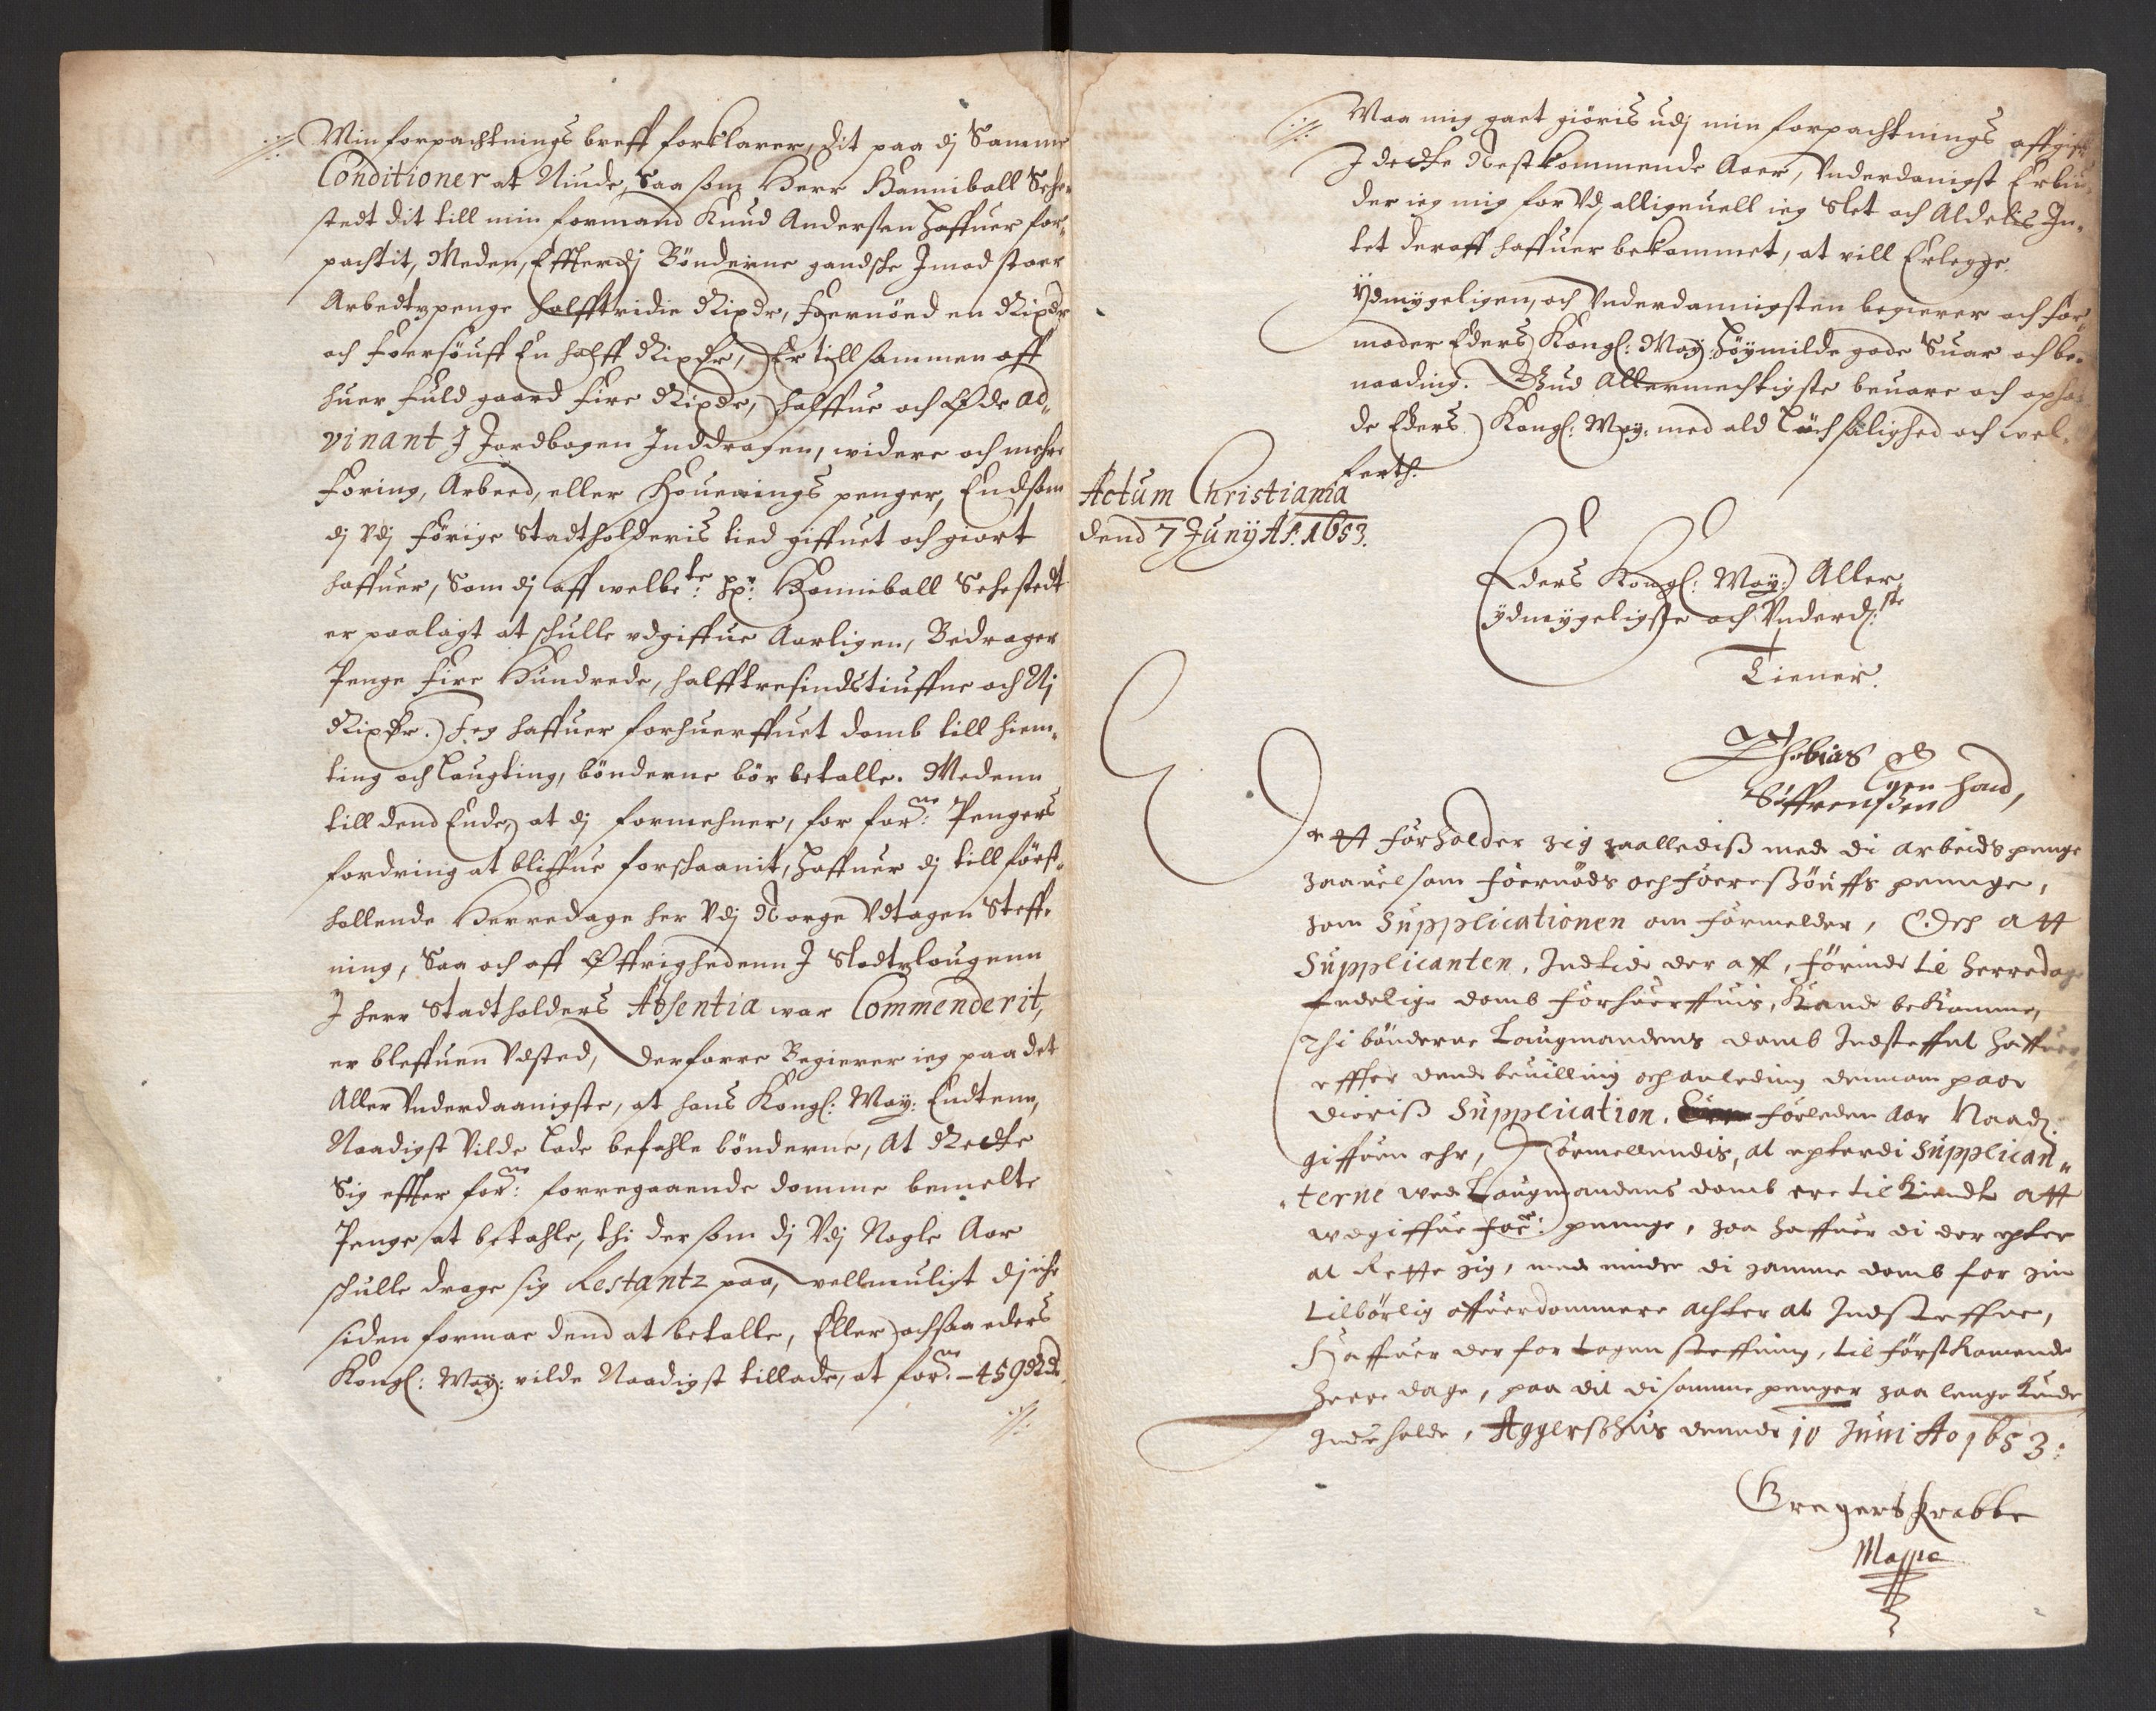 Min forpachtnings breff forklarer, dit paa dj Samme
Conditioner at Niude, Saa som Herr Hanniball Sehe-
stedt dit till min formand Knud Andersen haffuer for-
pachtit, Meden, Effterdj Bönderne gandsche Jmod staar
Arbedtzpenge halfftridie Rixdr, foernöed en Rixdr
och foersöuff En halff Rixdr, Er till sammen aff
huer fuld gaard fire Rixdr, halffue och Øde ad-
vinant J Jordbogen Inddragen, widere och mehre
foring, Arbeed, eller Houerings penger, End som
dj Vdj förige Stadtholderis tied giffuet och giort
haffuer, Som dj aff welbe:te Hr: Hanniball Sehestedt
er paalagt at schulle vdgiffue Aarligen, Bedrager
Penge fire Hundrede, halfftresindstiuffue och Nj
Rixdr. Jeg haffuer forhuerffuet domb till hiem-
ting och Laugting, bönderne bör betalle. Medenn
till dend Ende, at dj formehner, for for:ne Pengers
fordring at bliffue forschaanit, haffuer dj till först-
hollende Herredage her Vdj Norge Vdtagen Steff-
ning, Saa och aff Øffrighedenn J Slodtzlougenn
J herr Stadtholders Absentia war Commenderit,
er bleffuen Vdsted, Derforre Begierer ieg paa det
Aller Vnderdaanigste, at hans Kongl: May: Endtenn,
Naadigst Vilde Lade befahle bönderne, At Rette
Sig effter for:ne forregaaende domme bemelte
Penge at betahle, thi dersom dj Vdj Nogle Aar
schulle drage sig Restantz paa, vellmuligt dj iche
siden formaae dend at betalle, Eller och saa eders
Kongl: May: vilde Naadigst tillade, at for:ne 459 Rdr
Maa mig gaet giöris udj min forpachtnings affgifft
J dette Nestkommende Aaer, Vnderdanigst Erbiu-
der ieg mig for Vdj alligeuell ieg Slet och Aldelis In-
tet deraff haffuer bekommet, at vill Erlegge.
Ydmygeligen, och Vnderdannigsten begierer och for-
moder Eders Kongl: May: höymilde gode Suar och be-
naading. Gud Allermechtigste beuare och ophol-
de Eders Kongl: May: med ald Lychsalighed och vel-
ferth.
Actum Christiania
dend 7 Junij Ao. 1653.
Eders Kongl: May: Aller
ydmygeligste och Vnderd:ste
Tiener.
Thobias
Söffrensen
Egen hand,
Dett forholder sig saallediß med di arbeids penge
saauelsom foernöds och foeresöuffs penge,
som Supplicationen om formelder, Och att
Supplicanten, Indtide der aff, förinde til herredage
Endelige domb forhuerffuis, Kande bekomme,
Thi bönderne Laugmandens domb Indsteffnet haffuer
effter dend beuilling och anleding dennom paa
dioriß Supplication, forleden Aar Naad:
giffuen ehr, Formellendis, at epterdi Supplican-
terne wed Laugmandens domb ere tilkiendt att
wdgiffue for:ne penge, saa haffuer di der epter
at Rette sig, med mindre di samme domb for sin
tilbörlig offuerdommere achter at Indsteffne,
Haffuer der for tagen steffning, til först kommende
herre dage, paa dit di samme penger saa lenge kunde
Indeholde, Aggershus dennd 10 Juni Ao 1653:
Gregers Krabbe
Mappa